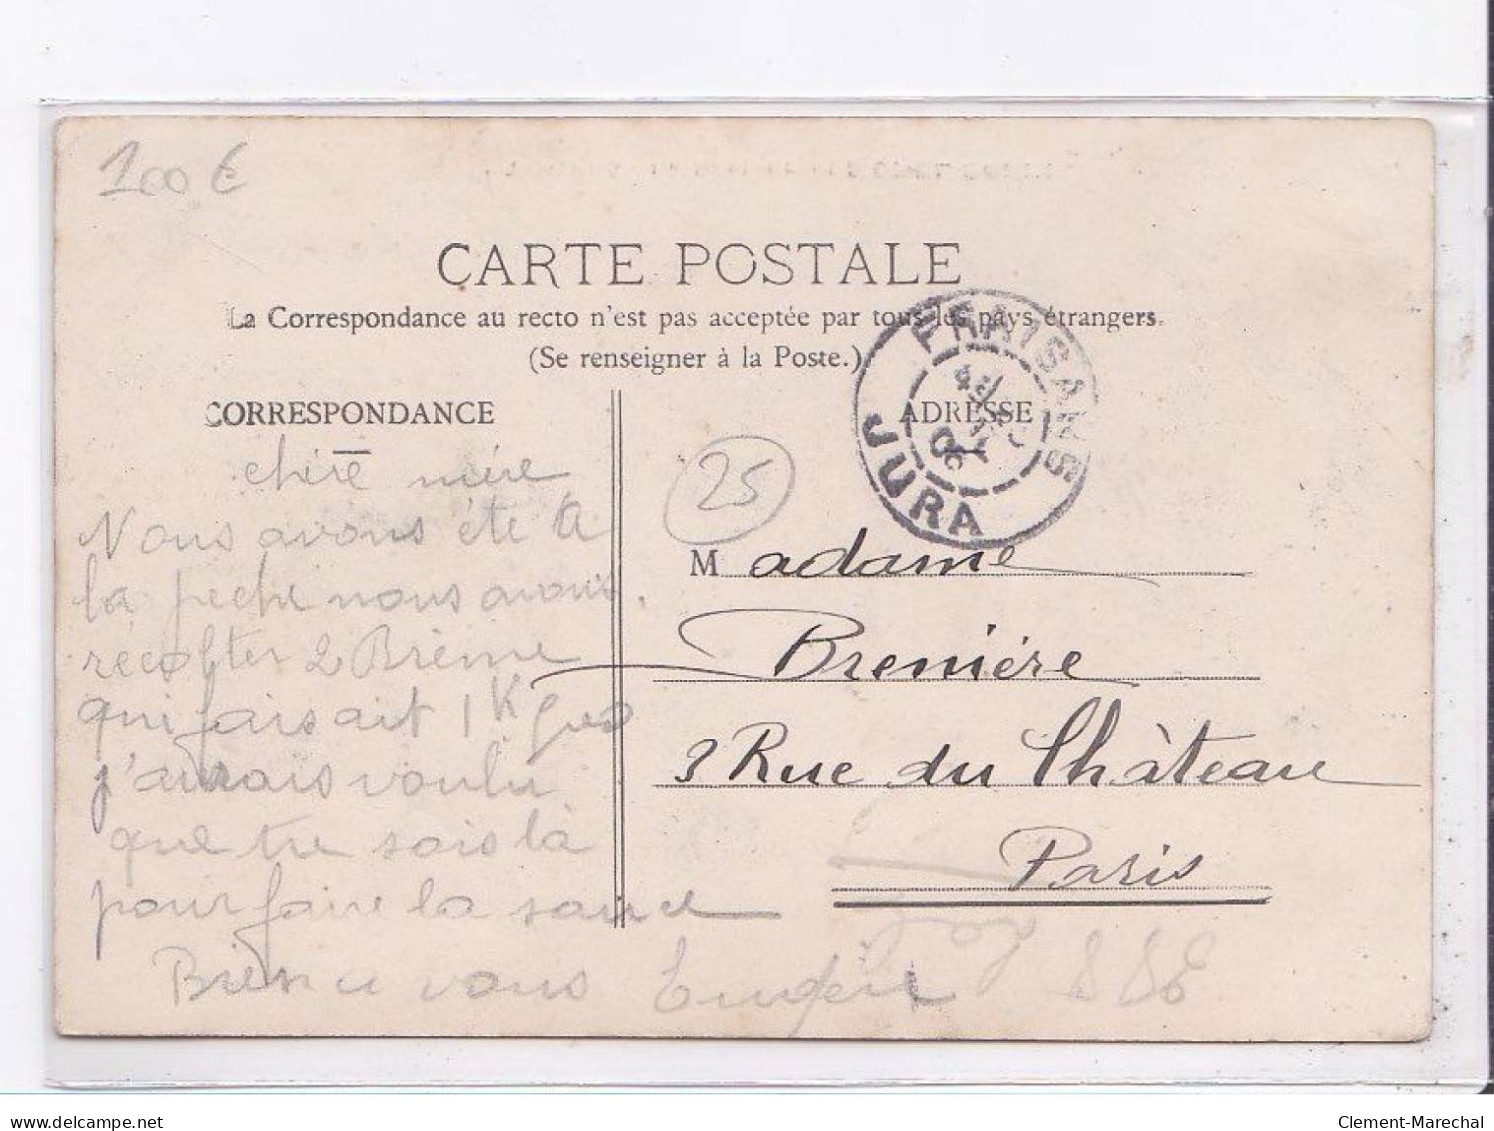 100 €
CARTE POSTALE
La Correspondance au recto n'est pas acceptée par tous les pays étrangers.
(Se renseigner à la Poste.)
CORRESPONDANCE
ADRESSE
FRAISANS
JURA
06
25
chère mère
Nous avons été à
la peche nous avons
récolter 2 Brème
qui faisait 1 K
j'aurais voulu
que tu sois là
pour faire la sauce
Bien a vous Eugène
Madame
Brenière
3 Rue du Château
Paris
delcampe.net
Clement-Marechal